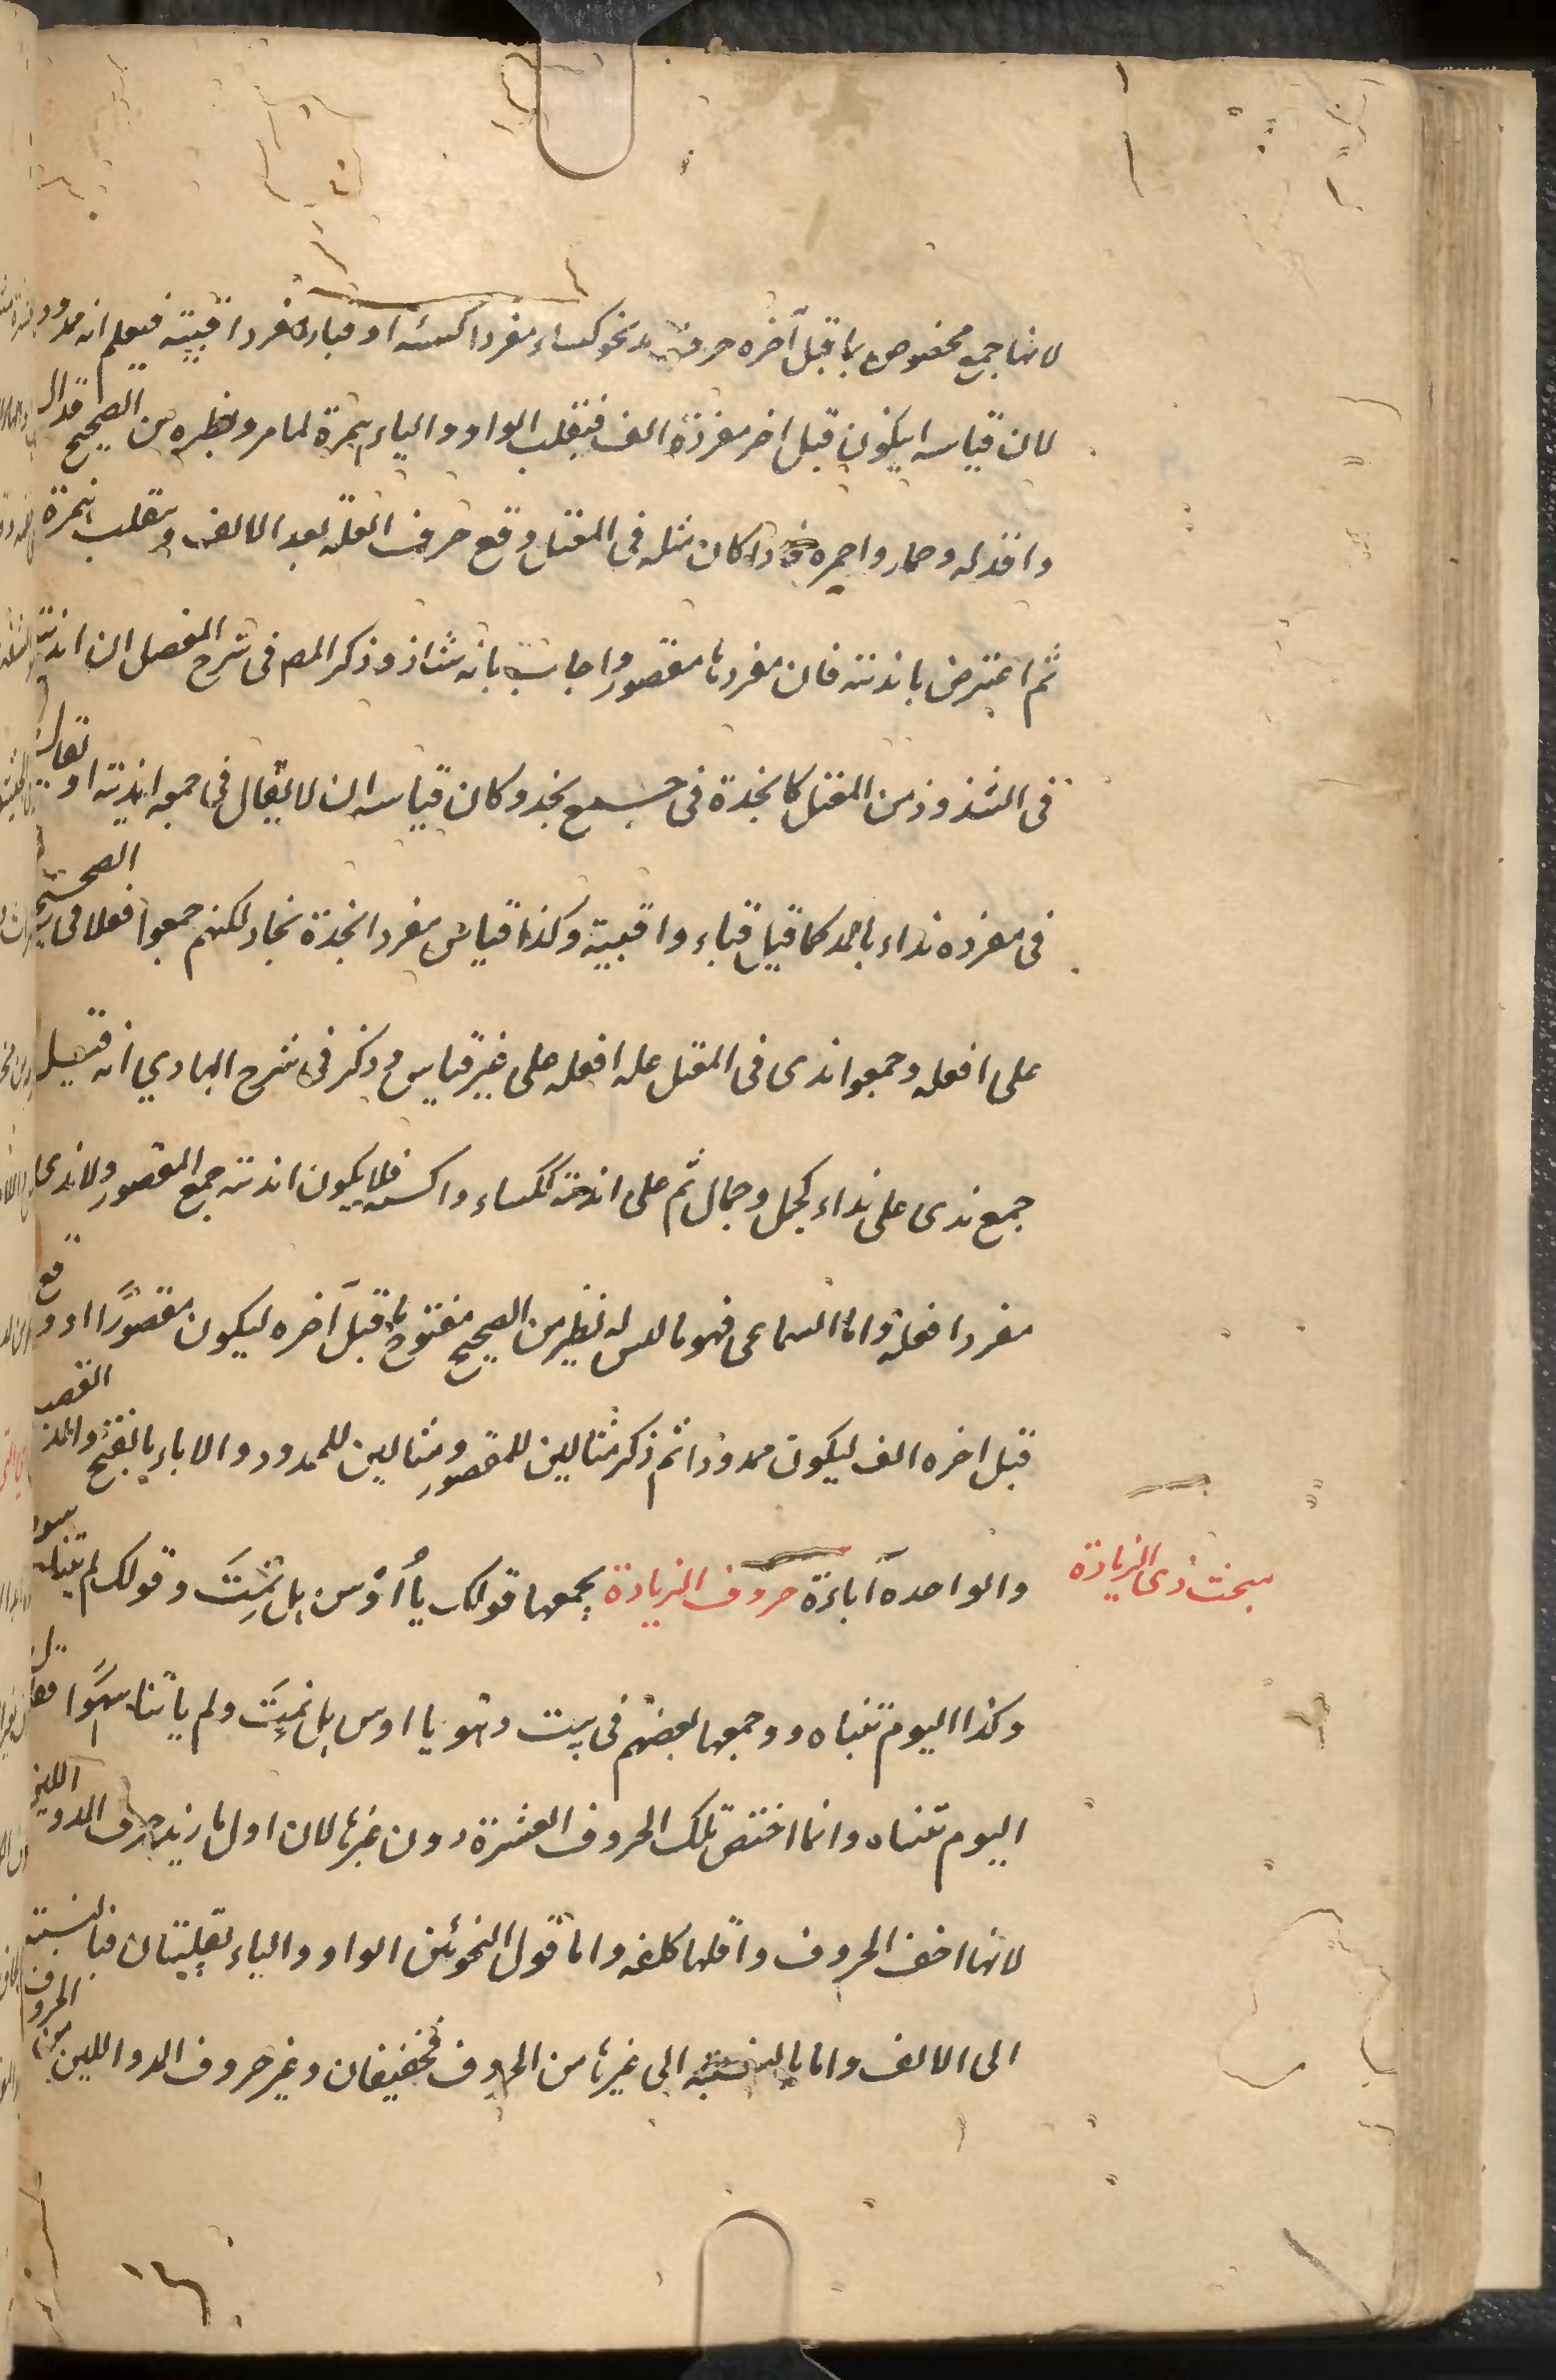 لانها جمع مخصوص بما قبل آخره حرف مد نحو كساء مفرد اكسئة او قباء مفرد اقبية فيعلم انه ممدود
لان قياسه ان يكون قبل اخر مفرده الف فيقلب الواو والياء همزة لما مر ونظيره من الصحيح قذال
واقذله وحمار واحمره فاذا كان مثله فى المعتل وقع حرف العلة بعد الالف وتقلب همزة
ثم اعترض باندية فان مفردها مقصور واجاب بانه شاذ وذكر المص فى شرح المفصل ان اندية
فى الشذوذ من المعتل كانجدة فى جمع نجد وكان قياسه ان لا يقال فى جمعه اندية او يقال
فى مفرده نداء بالمد كما قيل قباء واقبية وكذا قياس مفرد انجدة نجاد لكنهم جمعوا فعلا فى الصحيح
على افعله وجمعوا ندى فى المعتل على افعله على غير قياس وذكر فى شرح الهادي انه قيل
جمع ندى على نداء كجمل وجمال ثم على اندية ككساء واكسية فلا يكون اندية جمع المقصور ولا ندى
مفرد افعلة واما السماعى فهو ما ليس له نظير من الصحيح مفتوح ما قبل آخره ليكون مقصورًا او وقع
قبل اخره الف ليكون ممدودا ثم ذكر مثالين للمقصور ومثالين للممدود والاباء بالفتح والمد القصب
والواحدة آباءة حروف الزيادة يجمعها قولك يا أُوْس هل نمِتَ وقولك لم يأتنا سهوا
مبحث ذى الزيادة
وكذا اليوم تنساه ووجمعها بعضهم فى بيت وهو يا اوس هل نمِتَ ولم يأتنا سهوًا فقال
اليوم تنساه وانما اختص تلك الحروف العشرة دون غيرها لان اولى ما زيد حرف المد واللين
لانها اخف الحروف واقلها كلفه واما قول النحوئين الواو والياء ثقيلتان فبالنسبة
الى الالف واما بالنسبة الى غيرها من الحروف فخفيفان وغير حروف المد واللين من الحروف